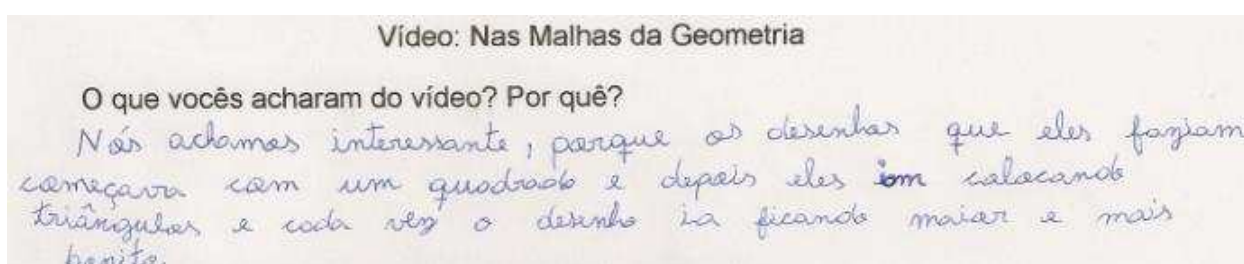 Vídeo: Nas Malhas da Geometria
O que vocês acharam do vídeo? Por quê?
Nós achamos interessante, porque os desenhos que eles faziam
começava com um quadrado e depois eles iam colocando
triângulos e cada vez o desenho ia ficando maior e mais
bonito.